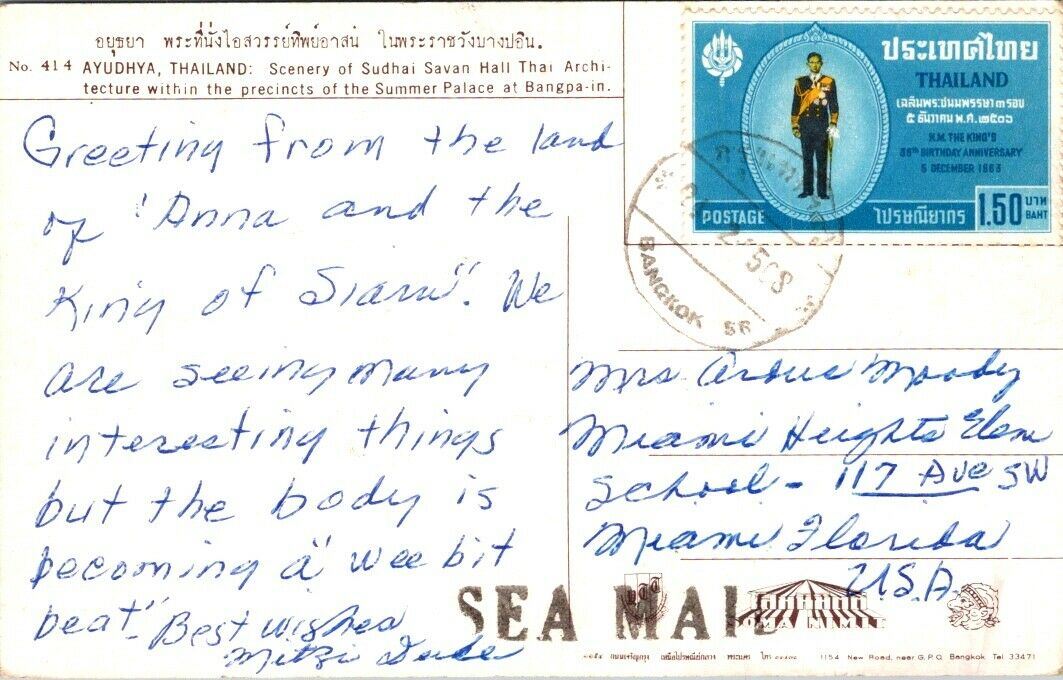 อยุธยา พระที่นั่งไอสวรรย์ทิพย์อาสน์ ในพระราชวังบางปอิน.
No. 414 AYUDHYA, THAILAND: Scenery of Sudhai Savan Hall Thai Archi-
tecture within the precincts of the Summer Palace at Bangpa-in.
Greeting from the land
of "Anna and the
King of Siam". We
are seeing many
interesting things
but the body is
becoming a "wee bit
beat". Best wishes
Mitzi
ประเทศไทย
THAILAND
เฉลิมพระชนมพรรษา ๓ รอบ
๕ ธันวาคม พ.ศ. ๒๕๐๖
H.M. THE KING'S
36th BIRTHDAY ANNIVERSARY
5 DECEMBER 1963
POSTAGE
ไปรษณียากร
1.50 บาท
BAHT
2508
BANGKOK
Mrs Moody
Miami Heights Elem
School - 117 Ave SW
Miami Florida
U.S.A.
SEA MAIL
1154 New Road, near G.P.O. Bangkok Tel 33471